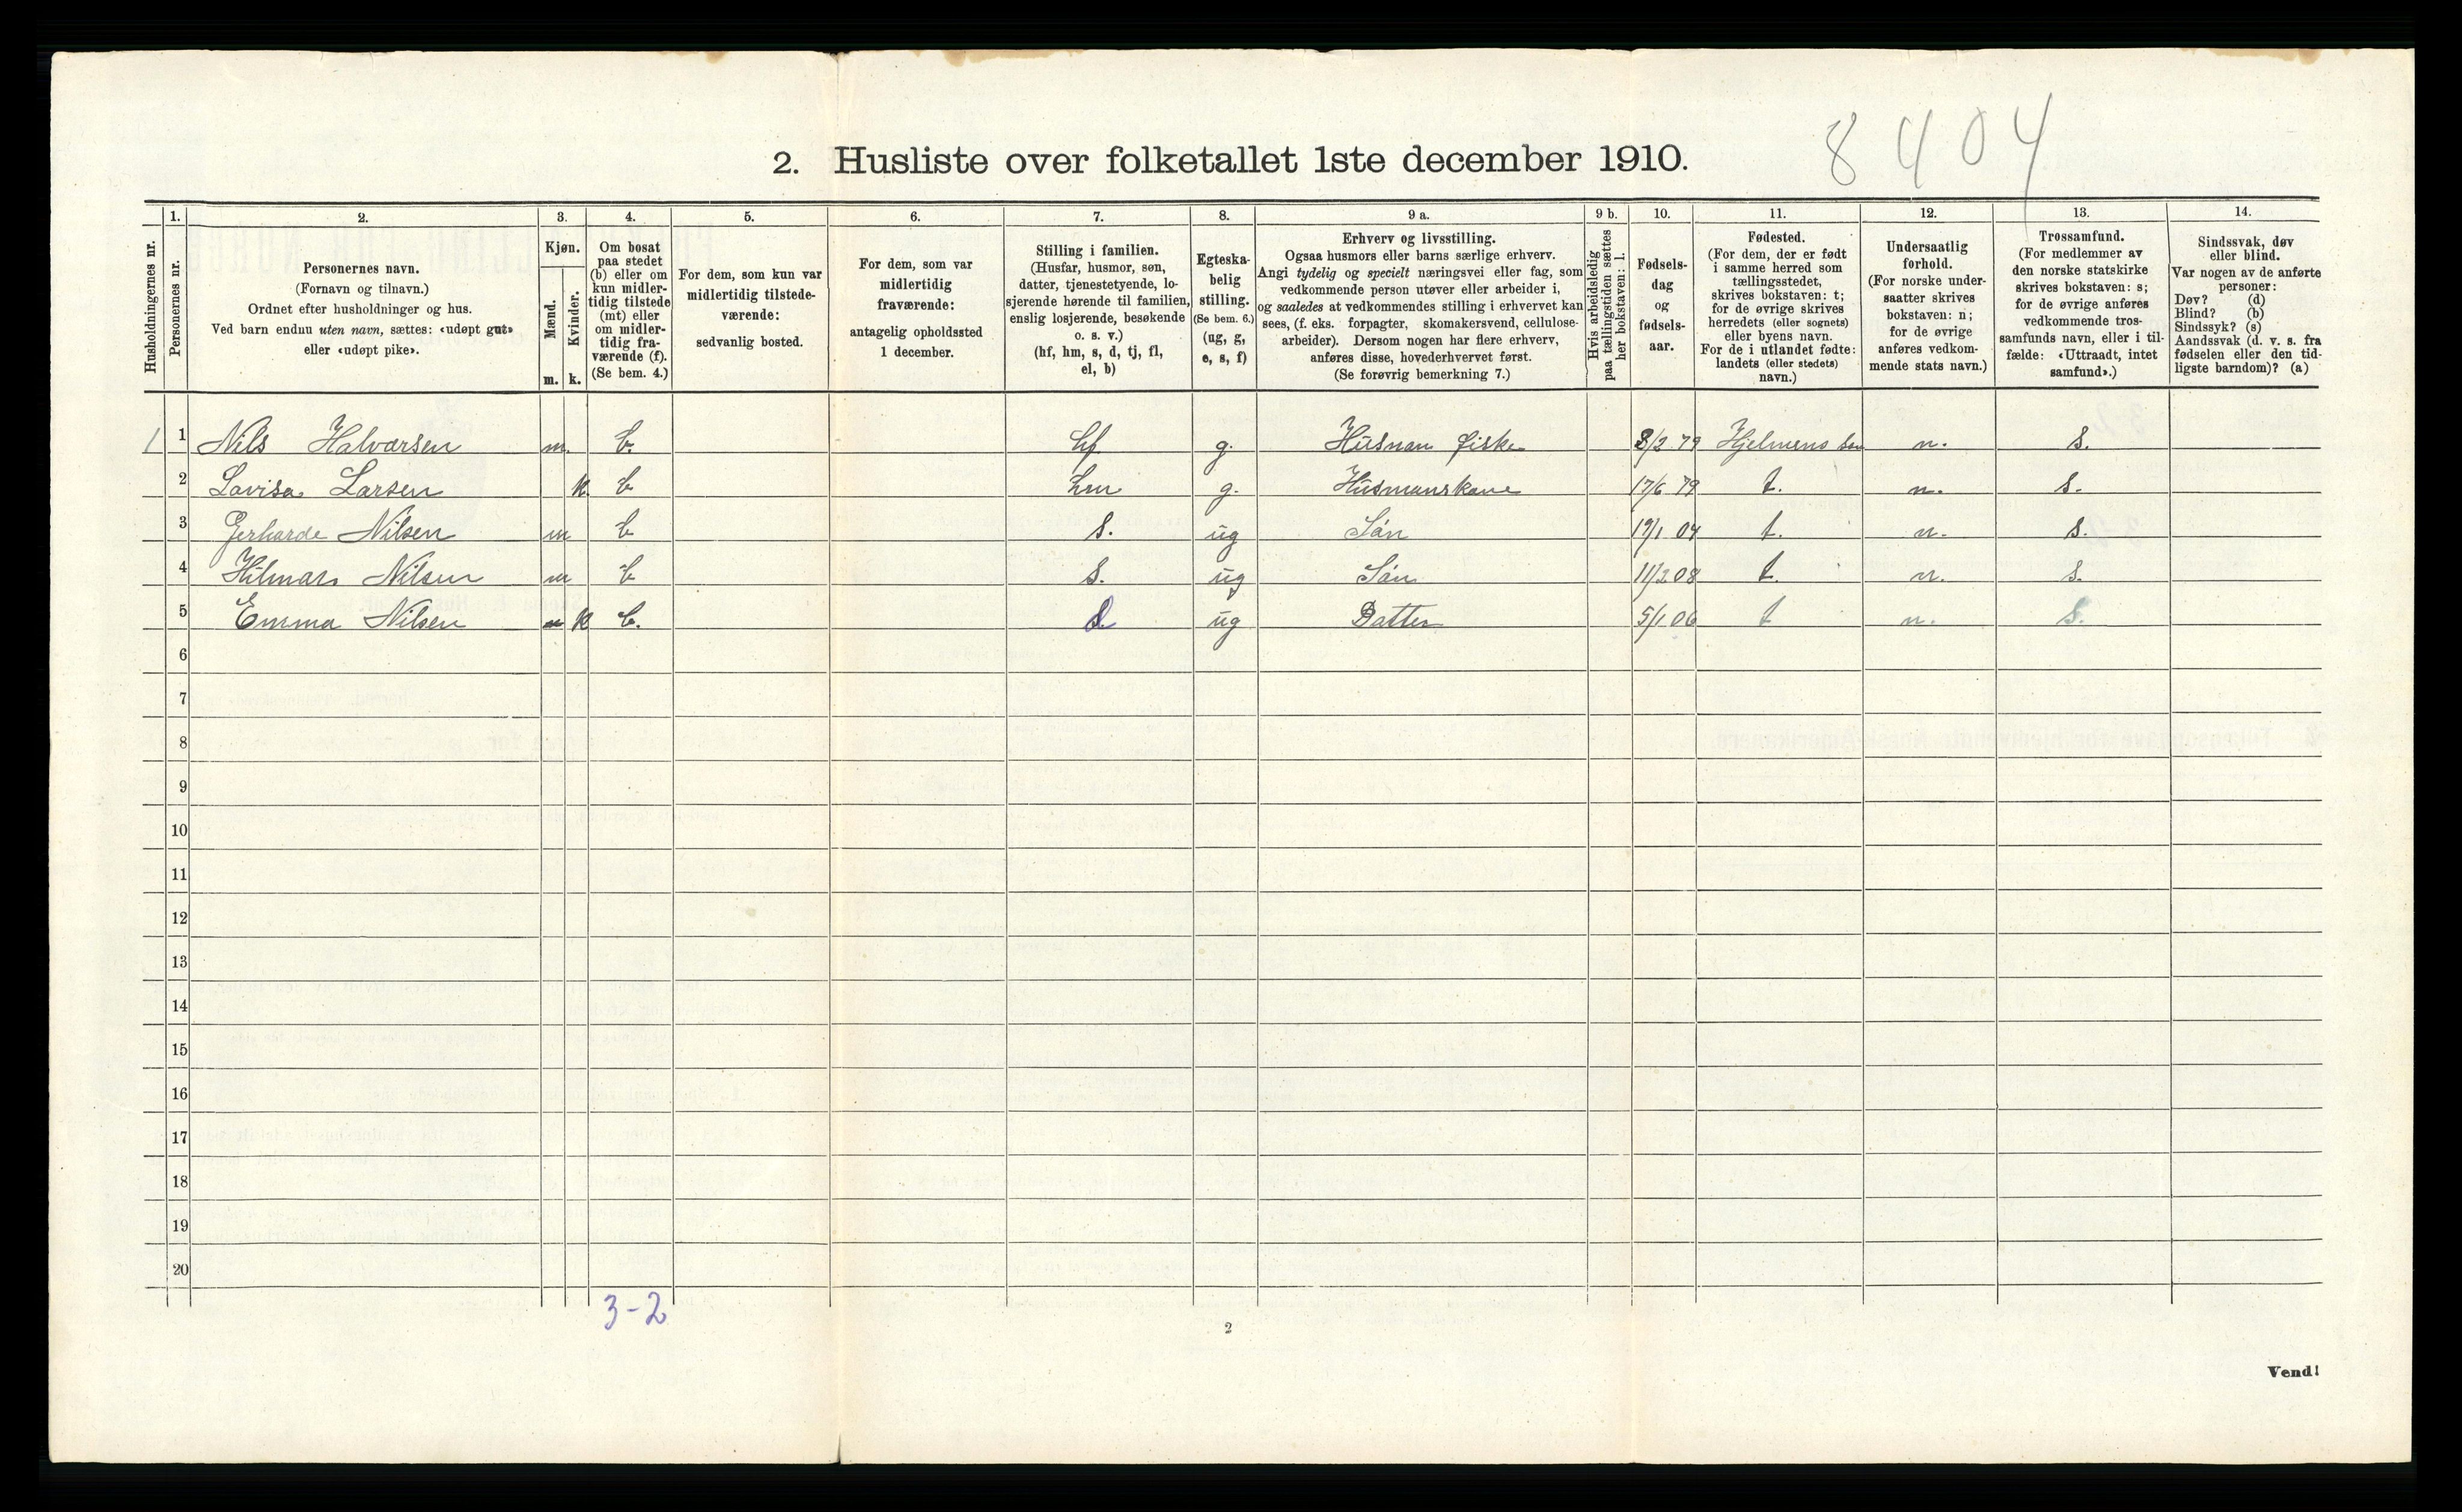 8404
2. Husliste over folketallet 1ste december 1910.
Husholdningernes nr.
1.
Personernes nr.
2.
Personernes navn.
(Fornavn og tilnavn.)
Ordnet efter husholdninger og hus.
Ved barn endnu uten navn, sættes: «udøpt gut»
eller «udøpt pike».
3.
Kjøn.
Mænd.
Kvinder.
m.
k.
4.
Om bosat
paa stedet
(b) eller om
kun midler-
tidig tilstede
(mt) eller
om midler-
tidig fra-
værende (f).
(Se bem. 4.)
5.
For dem, som kun var
midlertidig tilstede-
værende:
sedvanlig bosted.
6.
For dem, som var
midlertidig
fraværende:
antagelig opholdssted
1 december.
7.
Stilling i familien.
(Husfar, husmor, søn,
datter, tjenestetyende, lo-
sjerende hørende til familien,
enslig losjerende, besøkende
o. s. v.)
(hf, hm, s, d, tj, fl,
el, b)
8.
Egteska-
belig
stilling.
(Se bem. 6.)
(ug, g,
e, s, f)
9 a.
Erhverv og livsstilling.
Ogsaa husmors eller barns særlige erhverv.
Angi tydelig og specielt næringsvei eller fag, som
vedkommende person utøver eller arbeider i,
og saaledes at vedkommendes stilling i erhvervet kan
sees, (f. eks. forpagter, skomakersvend, cellulose-
arbeider). Dersom nogen har flere erhverv,
anføres disse, hovederhvervet først.
(Se forøvrig bemerkning 7.)
9 b.
Hvis arbeidsledig
paa tællingstiden sættes
her bokstaven: l.
10.
Fødsels-
dag
og
fødsels-
aar.
11.
Fødested.
(For dem, der er født
i samme herred som
tællingsstedet,
skrives bokstaven: t;
for de øvrige skrives
herredets (eller sognets)
eller byens navn.
For de i utlandet fødte:
landets (eller stedets)
navn.)
12.
Undersaatlig
forhold.
(For norske under-
saatter skrives
bokstaven: n;
for de øvrige
anføres vedkom-
mende stats navn.)
13.
Trossamfund.
(For medlemmer av
den norske statskirke
skrives bokstaven: s;
for de øvrige anføres
vedkommende tros-
samfunds navn, eller i til-
fælde: «Uttraadt, intet
samfund».)
14.
Sindssvak, døv
eller blind.
Var nogen av de anførte
personer:
Døv? (d)
Blind? (b)
Sindssyk? (s)
Aandssvak (d. v. s. fra
fødselen eller den tid-
ligste barndom)? (a)
1 1 Nils Halvarsen m. b. hf g. Husman fisker 8/2 79 Hjelmens n. s.
2 Lavisa Larsen k. b hm g. Husmanskone 17/6 79 t. n. s.
3 Gerharde Nilsen m b s. ug Søn 19/1 04 t. n. s.
4 Hilmar Nilsen m b s. ug Søn 11/2 08 t. n. s.
5 Emma Nilsen k b. d ug Datter 5/1 06 t n. s.
6
7
8
9
10
11
12
13
14
15
16
17
18
19
20
3-2
2
Vend!